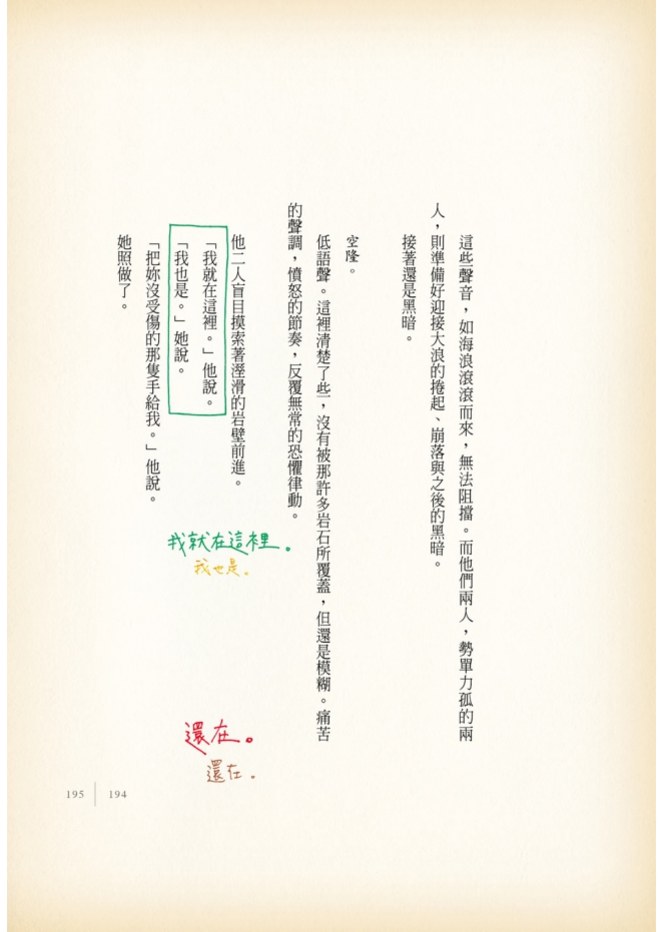 這些聲音，如海浪滾滾而來，無法阻擋。而他們兩人，勢單力孤的兩
人，則準備好迎接大浪的捲起、崩落與之後的黑暗。
接著還是黑暗。
空隆。
低語聲。這裡清楚了些，沒有被那許多岩石所覆蓋，但還是模糊。痛苦
的聲調，憤怒的節奏，反覆無常的恐懼律動。
他二人盲目摸索著溼滑的岩壁前進。
「我就在這裡。」他說。
「我也是。」她說。
「把妳沒受傷的那隻手給我。」他說。
她照做了。
我就在這裡。
我也是。
還在。
還在。
195 194